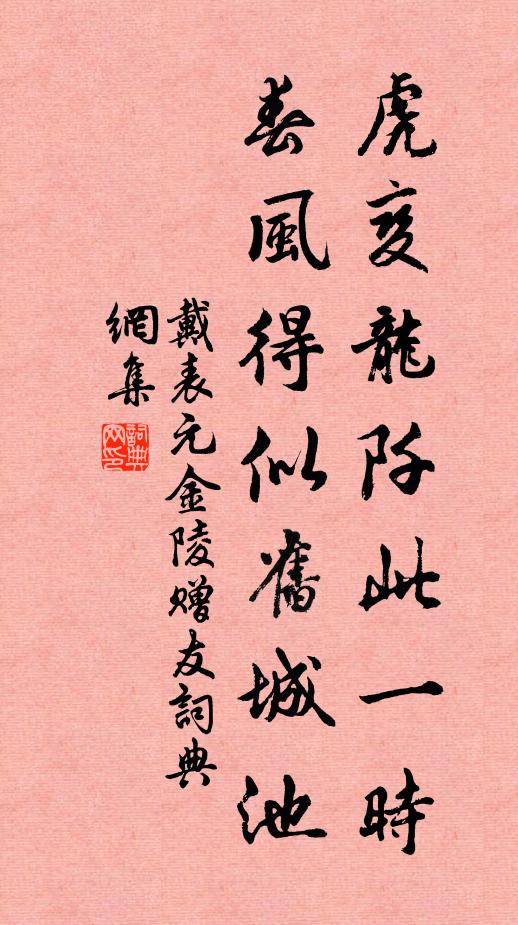 虎变龍阡此一時
春風得似舊城池
戴表元金陵贈友詞典
網集
詞典
网印